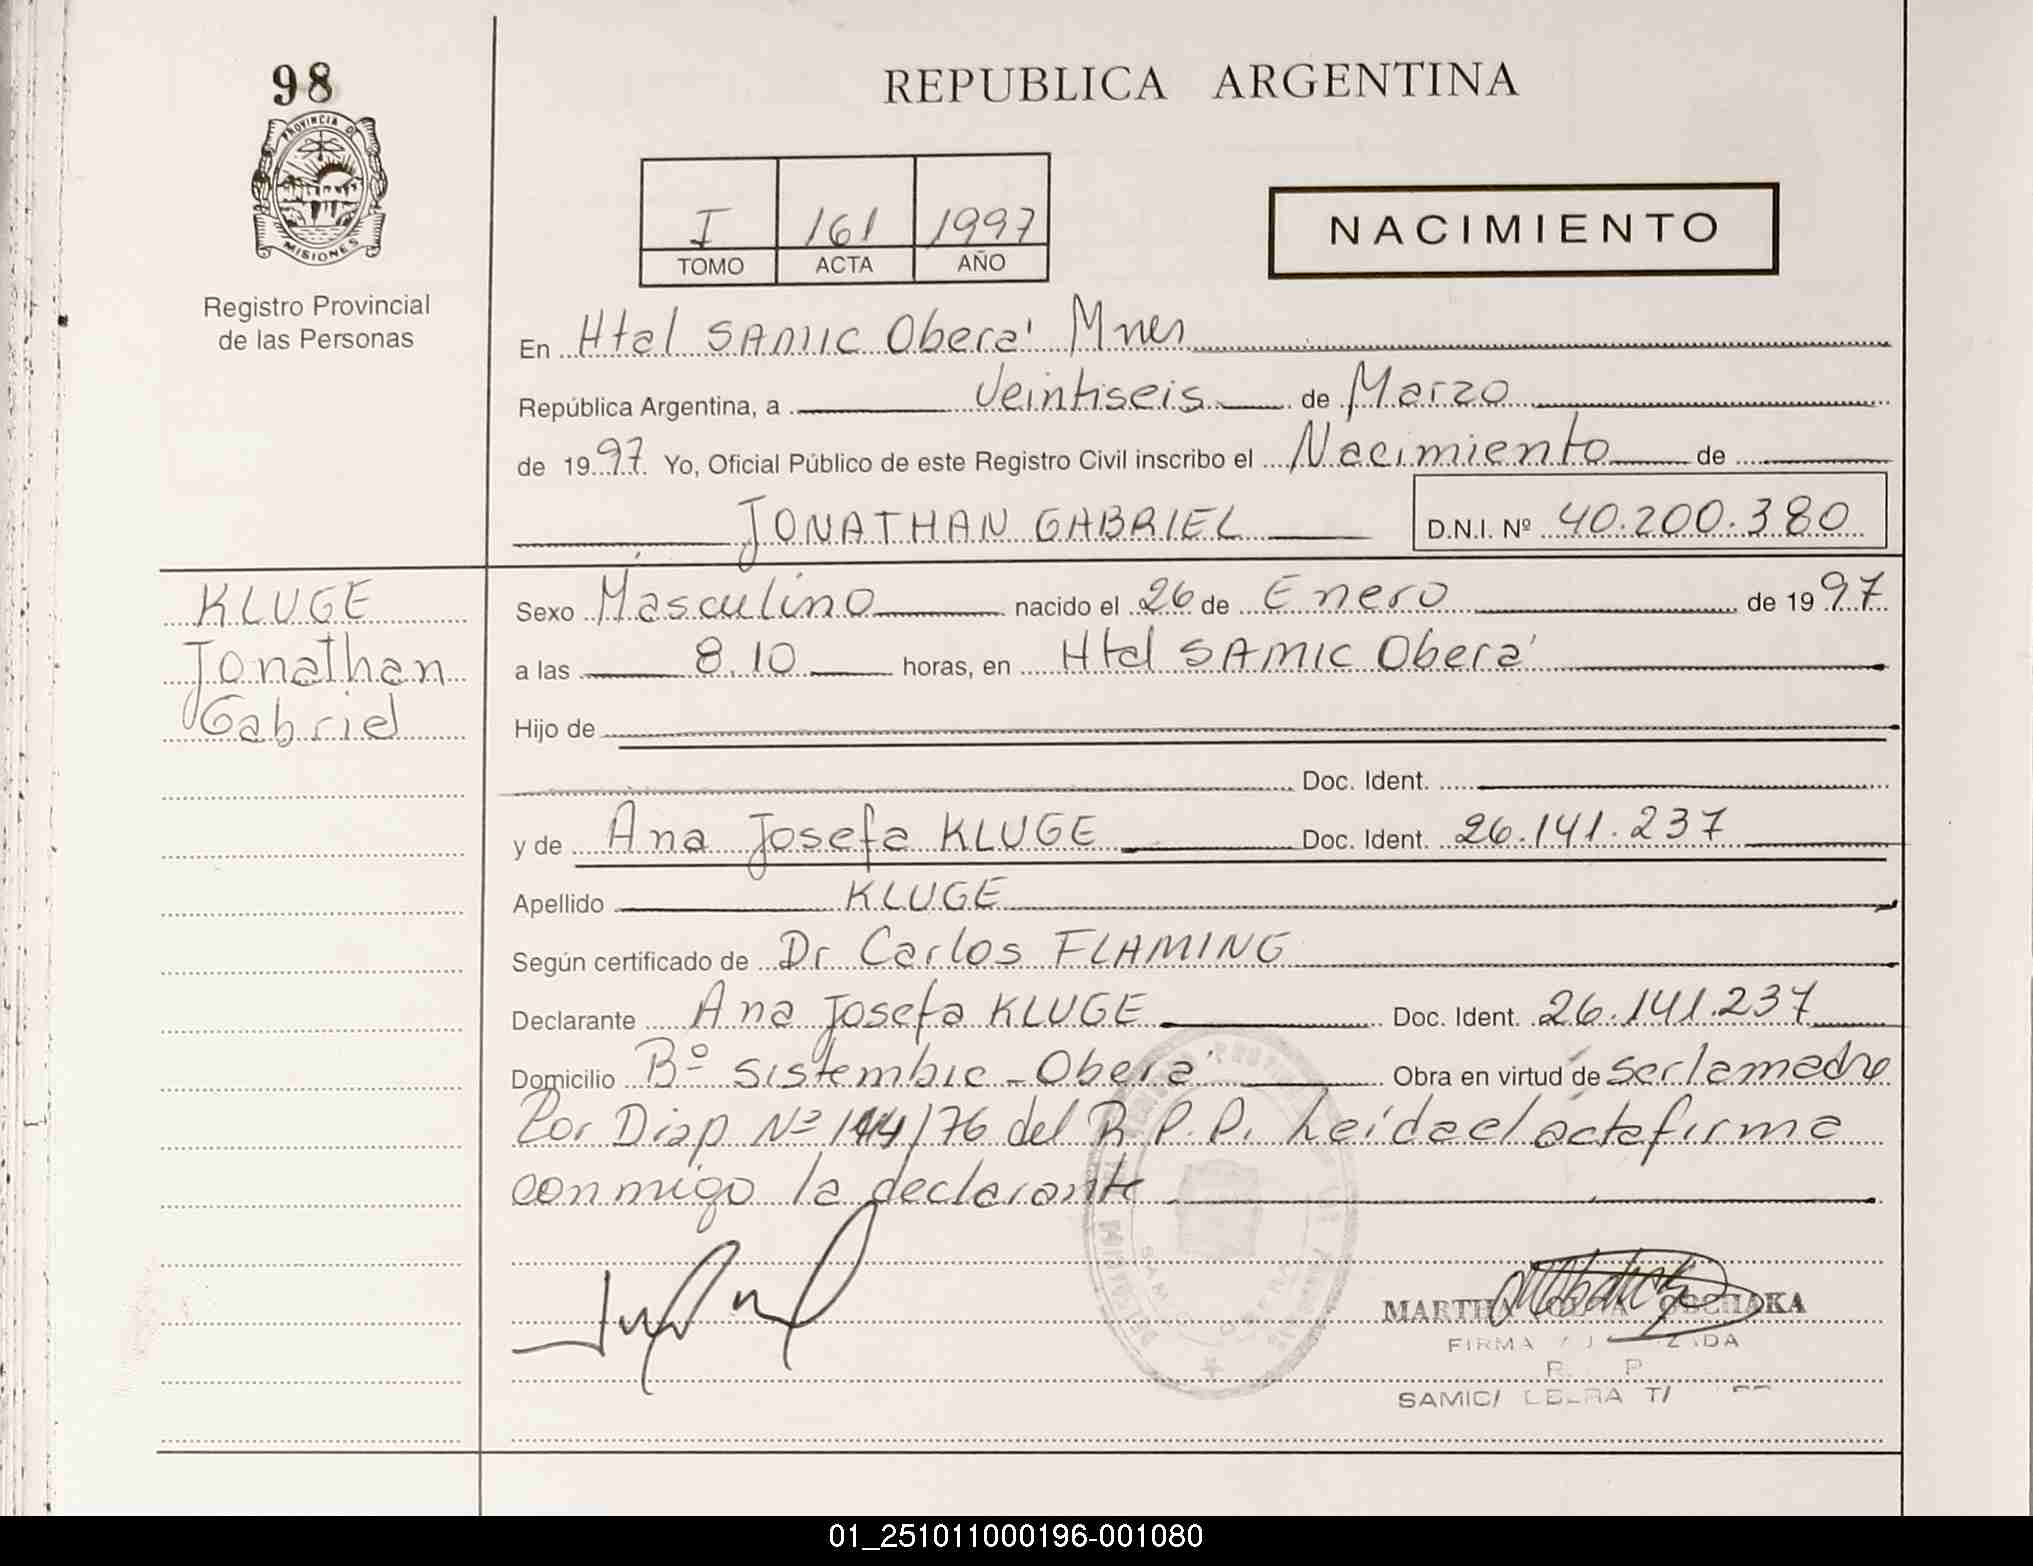 98
PROVINCIA DE
MISIONES
Registro Provincial
de las Personas
REPUBLICA ARGENTINA
I 161 1997
TOMO ACTA AÑO
NACIMIENTO
En Htal SAMIC Oberá Mnes
República Argentina, a Veintiseis de Marzo
de 1997 Yo, Oficial Público de este Registro Civil inscribo el Nacimiento de
JONATHAN GABRIEL D.N.I. Nº 40.200.380
KLUGE
Jonathan
Gabriel
Sexo Masculino nacido el 26 de Enero de 1997
a las 8.10 horas, en Htal SAMIC Oberá
Hijo de
Doc. Ident.
y de Ana Josefa KLUGE Doc. Ident. 26.141.237
Apellido KLUGE
Según certificado de Dr Carlos FLAMING
Declarante Ana Josefa KLUGE Doc. Ident. 26.141.237
Domicilio Bº Sistembic - Oberá Obra en virtud de ser la madre
Por Disp Nº 144/76 del R.P.P. Leída el acta firma
conmigo la declarante
MARTHA OLGA OBCHAKA
FIRMA
R. P.
SAMIC/
01_251011000196-001080